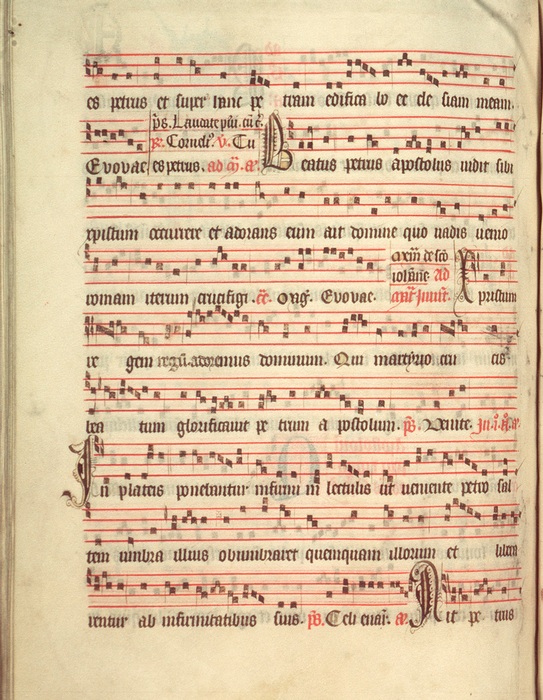 es petrus et super hanc pe tram edifica bo ec cle siam meam.
ps. Laudate pūi. cū c̄.
R. Corneli⁹. V. Tu
Evovae es petrus. ad
Beatus petrus apostolus vidit sibi
xpistum occurrere et adorans eum ait domine quo vadis venio
romam iterum crucifigi. Evovae.
ad
xpistum
re gem regū adoremus dominum. Qui martyrio cru cis
bea tum glorificavit pe trum a postolum. ps. Venite.
In plateis ponebantur infirmi in lectulis ut veniente petro sal
tem umbra illius obumbraret quemquam illorum et libera
rentur ab infirmitatibus suis. ps. Celi enar. a.
Ait pe trus